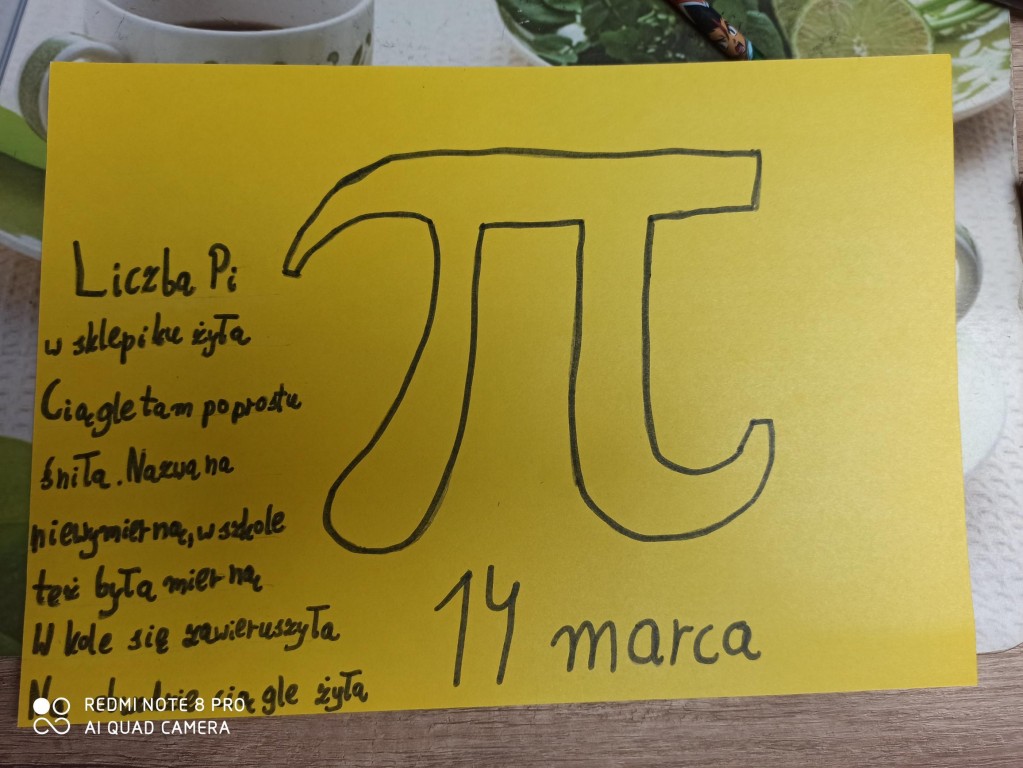 π
Liczba Pi
w sklepiku żyła
Ciągle tam poprostu
śniła. Nazwana
niewymierną, w szkole
też była mierną
W kole się zawieruszyła
ciągle żyła
14 marca
REDMI NOTE 8 PRO
AI QUAD CAMERA